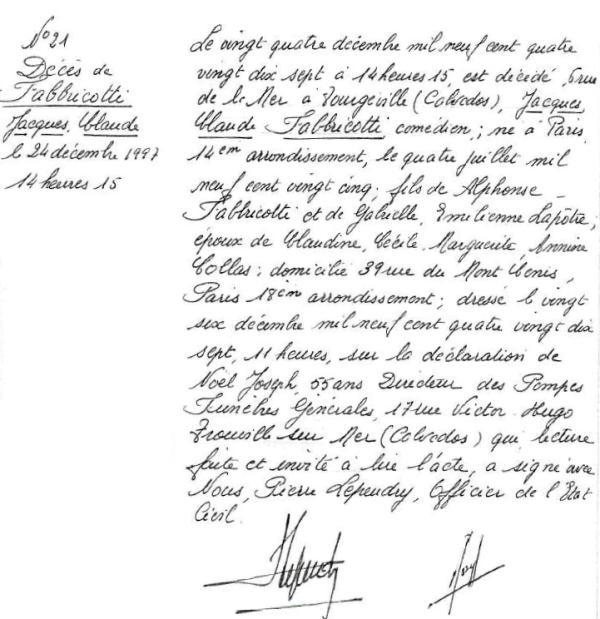 N° 21
Décès de
Fabbricotti
Jacques, Claude
le 24 décembre 1997
14 heures 15
Le vingt quatre décembre mil neuf cent quatre
vingt dix sept à 14 heures 15, est décédé, 6 rue
de la Mer à Tourgeville (Calvados), Jacques,
Claude Fabbricotti, comédien ; né à Paris,
14em arrondissement, le quatre juillet mil
neuf cent vingt cinq ; fils de Alphonse
Fabbricotti et de Gabrielle, Emilienne Lapôtre ;
époux de Claudine, Cécile, Marguerite, Annine
Collas ; domicilié 39 rue du Mont Cenis,
Paris 18em arrondissement ; dressé le vingt
six décembre mil neuf cent quatre vingt dix
sept, 11 heures, sur la déclaration de
Noël Joseph, 55 ans Directeur des Pompes
Funèbres Générales, 17 rue Victor Hugo
Trouville sur Mer (Calvados) qui, lecture
faite et invité à lire l'acte, a signé avec
Nous, Pierre Lependry, Officier de l'Etat
Civil.